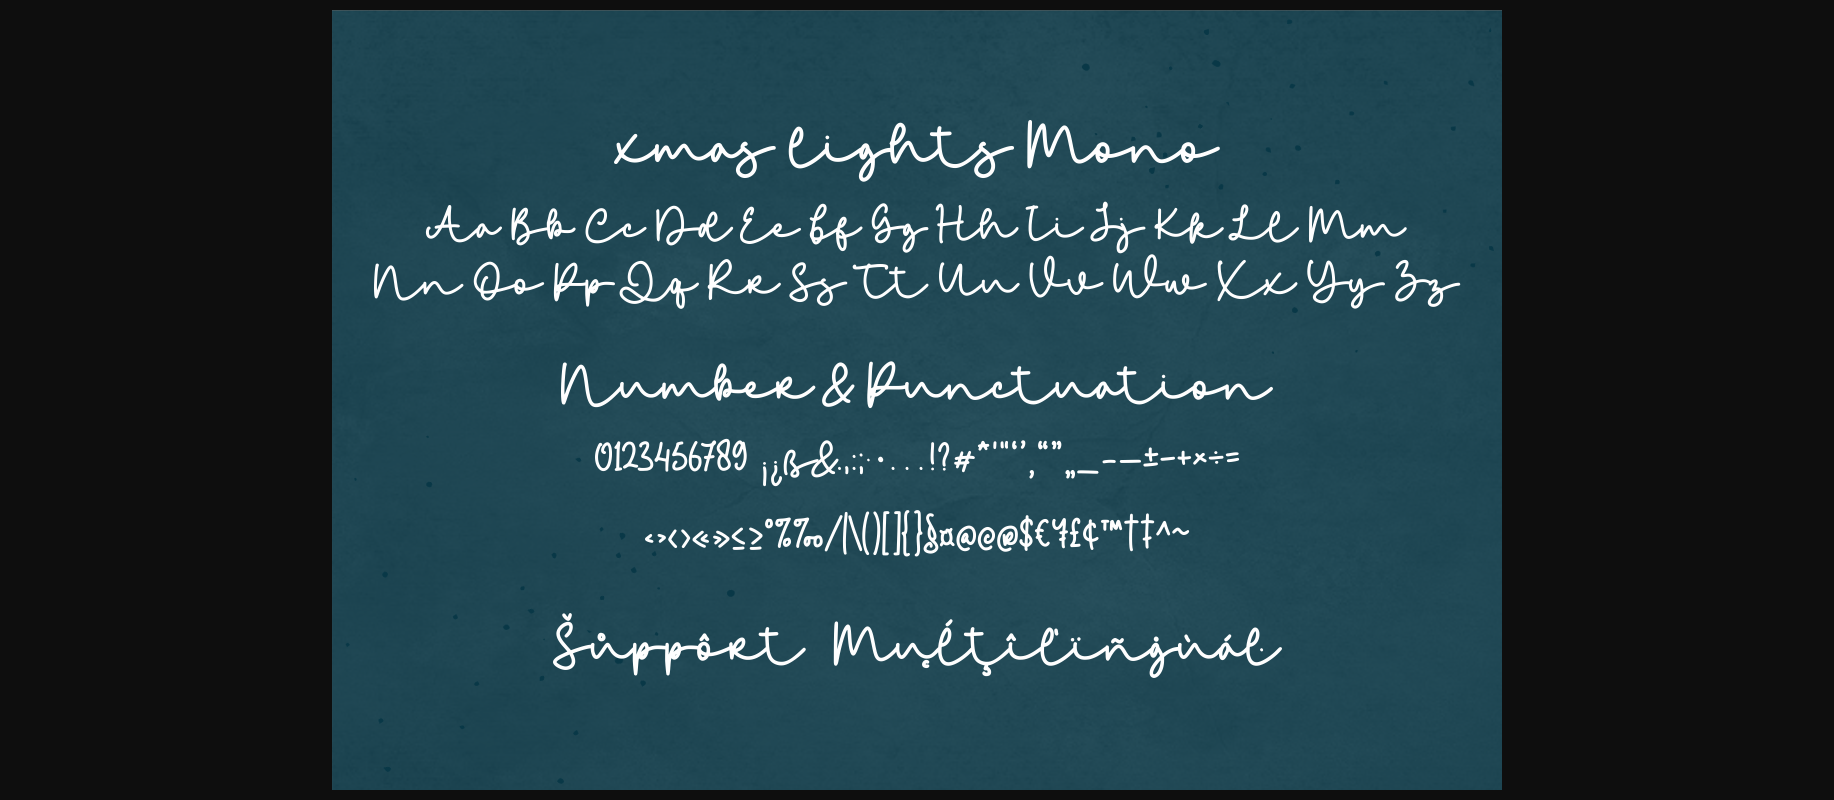 xmas lights Mono
Aa Bb Cc Dd Ee Ff Gg Hh Ii Jj Kk Ll Mm
Nn Oo Pp Qq Rr Ss Tt Uu Vv Ww Xx Yy Zz
Number & Punctuation
0123456789 ¡¿ß&.,:;·•...!?#*'"‘’‚“”„_–—±−+×÷=
‹›<>«»≤≥°%‰/|\()[]{}§¤@©®$€¥£¢™†‡^~
Šůppôrt Mu̧ĺţîľïñġùáŀ